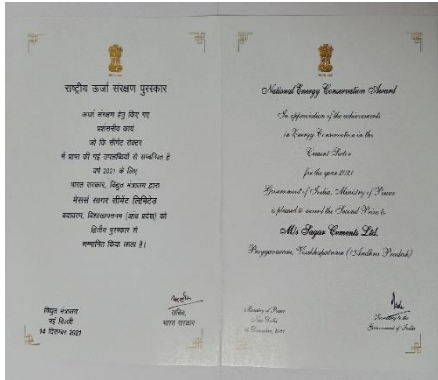 राष्ट्रीय ऊर्जा संरक्षण पुरस्कार
ऊर्जा संरक्षण हेतु किए गए
प्रशंसनीय कार्य
जो कि सीमेंट सेक्टर
में प्राप्त की गई उपलब्धियों से सम्बन्धित है
वर्ष 2021 के लिए
भारत सरकार, विद्युत मंत्रालय द्वारा
मेसर्स सागर सीमेंट लिमिटेड
(आंध्र प्रदेश) को
द्वितीय पुरस्कार से
सम्मानित किया जाता है।
विद्युत मंत्रालय
नई दिल्ली
14 दिसम्बर 2021
सचिव,
भारत सरकार
National Energy Conservation Award
In appreciation of the achievements
in Energy Conservation in the
Cement Sector
for the year 2021
Government of India, Ministry of Power
is pleased to award the Second Prize to
M/s Sagar Cements Ltd.
Visakhapatnam (Andhra Pradesh)
Ministry of Power
New Delhi
14 December, 2021
Secretary to the
Government of India